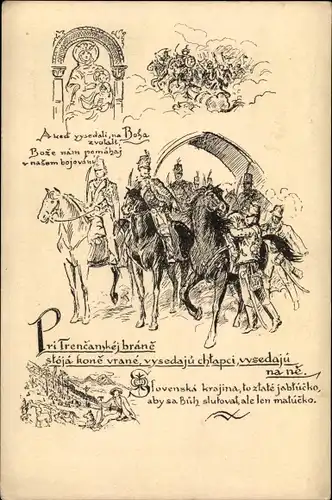 A keď vysedali, na Boha
zvolali:
Bože nám pomáhaj
v našom bojování
Pri Trenčanskéj bráně
stójá koně vrané, vysedajú chłapci, vysedajú
na ně.
Slovenská krajina, to złaté jabłúčko,
aby sa Bůh slutoval, ale len malúčko.